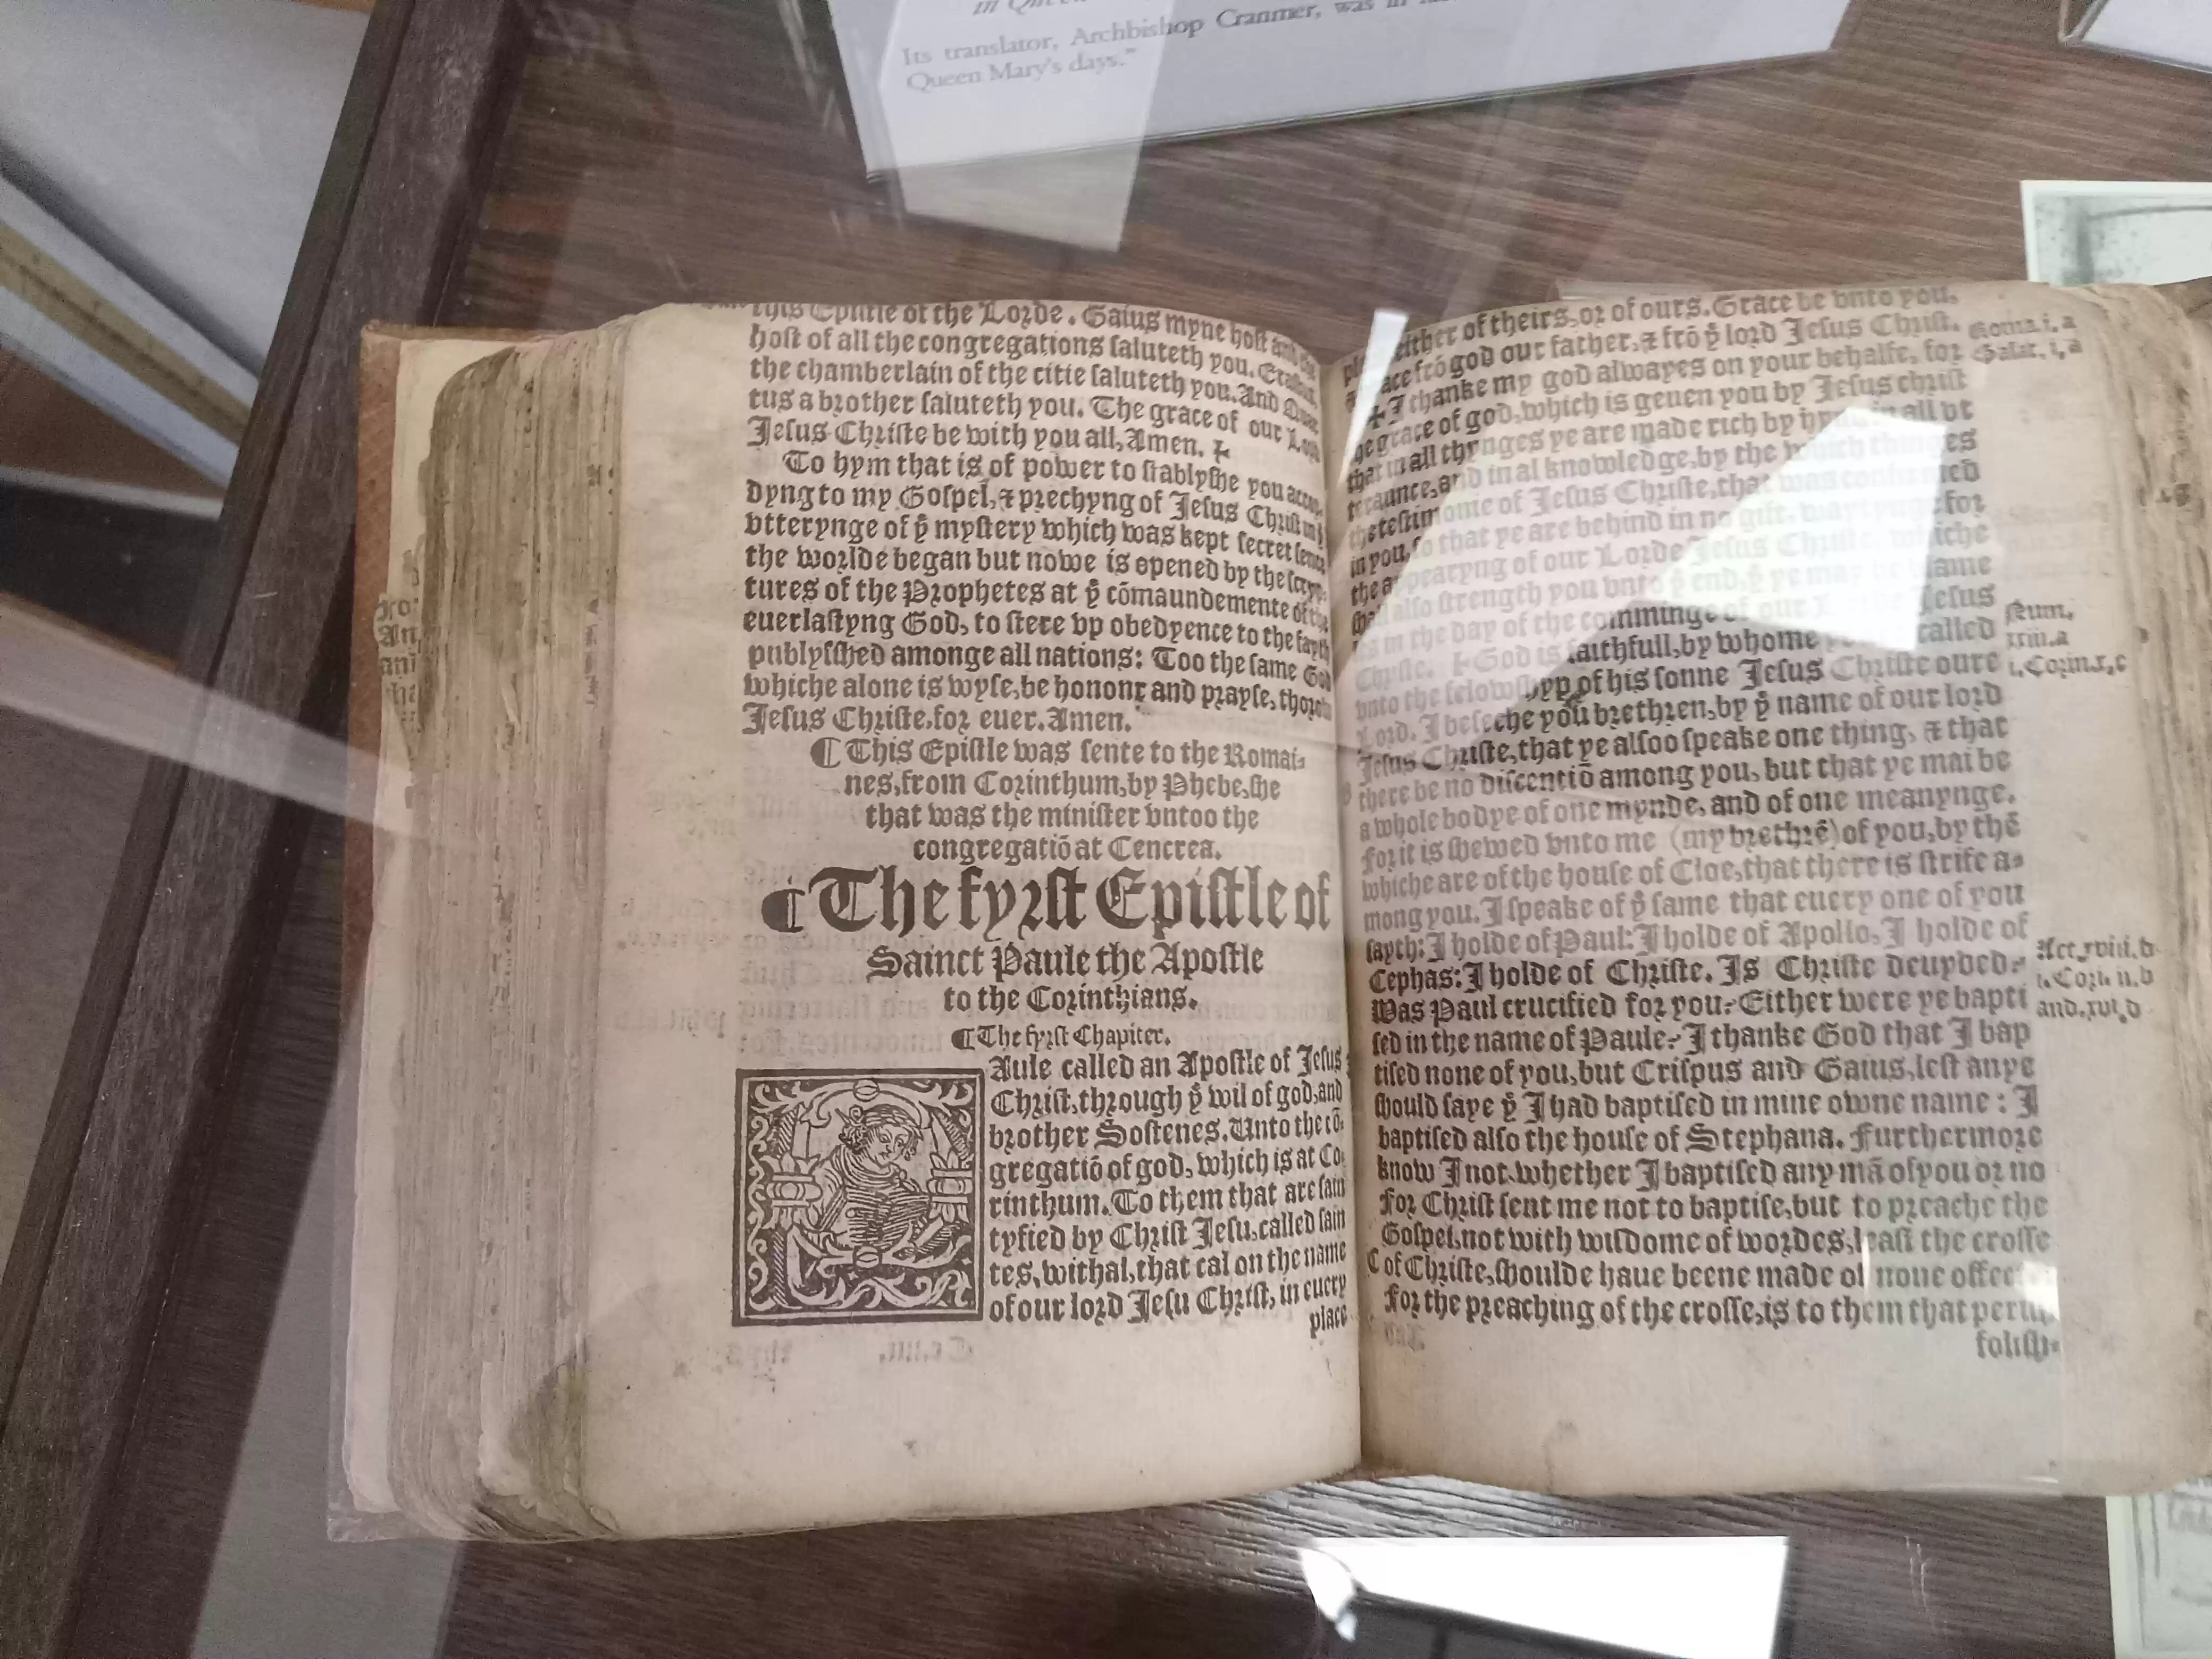 Its translator, Archbishop Cranmer, was in
Queen Mary's days."
this Epistle of the Lorde. Gaius myne host and the
host of all the congregations saluteth you. Erastus
the chamberlain of the citie saluteth you. And Quar
tus a brother saluteth you. The grace of our Lord
Jesus Christe be with you all, Amen. ✠
To hym that is of power to stablyshe you accor
dyng to my Gospel, & prechyng of Jesus Christ in
vtterynge of yͤ mystery which was kept secret sence
the worlde began but nowe is opened by the scryp
tures of the Prophetes at yͤ cōmaundemente of the
euerlastyng God, to stere vp obedyence to the fayth
publysshed amonge all nations: Too the same God
whiche alone is wyse, be honour and prayse, thorow
Jesus Christe. for euer. Amen.
¶ This Epistle was sente to the Romai-
nes, from Corinthum, by Phebe, she
that was the minister vntoo the
congregatiō at Cencrea.
¶ The fyrst Epistle of
Sainct Paule the Apostle
to the Corinthians.
¶ The fyrst Chapiter.
Aule called an Apostle of Jesus
Christ, through yͤ wil of god, and
brother Sostenes. Unto the cō-
gregatiō of god, which is at Co-
rinthum. To them that are sain
tyfied by Christ Jesu, called sain
tes, withal, that cal on the name
of our lord Jesu Christ, in euery
place
either of theirs, or of ours. Grace be vnto you,
frō god our father, & frō yͤ lord Jesus Christ.
Roma.i.a
✠ I thanke my god alwayes on your behalfe, for
Galat.i,a
the grace of god, which is geuen you by Jesus christ
that in all thynges ye are made rich by hym in all vt
teraunce, and in al knowledge, by the which thinges
the testimonie of Jesus Christe, that was confirmed
in you, so that ye are behind in no gift, waytynge for
the appearyng of our Lorde Jesus Christe, whiche
shall also strength you vnto yͤ end, yͭ ye may be blame
les in the day of the comminge of our Jesus
Christe. God is faithfull, by whome called
vnto the felowshyp of his sonne Jesus Christe oure
i.Corin.x,c
Lord. I beseche you brethren, by yͤ name of our lord
Jesus Christe, that ye alsoo speake one thing, & that
there be no discentiō among you, but that ye mai be
a whole bodye of one mynde, and of one meanynge.
for it is shewed vnto me (my brethrē) of you, by thē
whiche are of the house of Cloe, that there is strife a-
mong you. I speake of yͤ same that euery one of you
sayth: I holde of Paul: I holde of Apollo, I holde of
Cephas: I holde of Christe. Is Christe deuyded?
Act.xviii.d
Was Paul crucified for you? Either were ye bapti
and.xvi.d
sed in the name of Paule? I thanke God that I bap
tised none of you, but Crispus and Gaius, lest anye
should saye yͭ I had baptised in mine owne name: I
baptised also the house of Stephana. Furthermore
know I not, whether I baptised any mā of you or no
For Christ sent me not to baptise, but to preache the
Gospel, not with wisdome of wordes, least the crosse
C of Christe, shoulde haue beene made of none effect
For the preaching of the crosse, is to them that perish
folish-